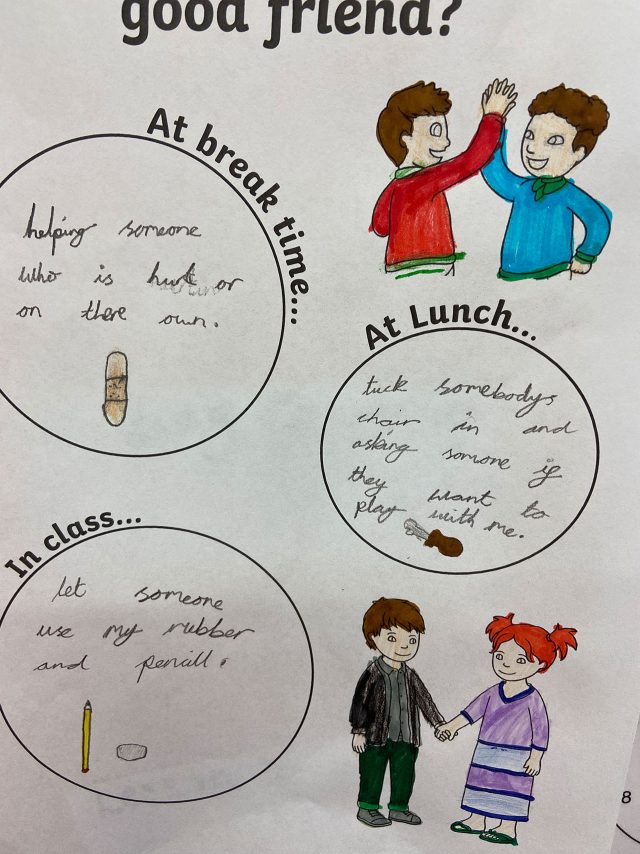 good friend?
At break time...
helping someone
who is hurt or
on there own.
At Lunch...
tuck somebodys
chair in and
asking somone if
they want to
play with me.
In class...
let someone
use my rubber
and pencill.
8